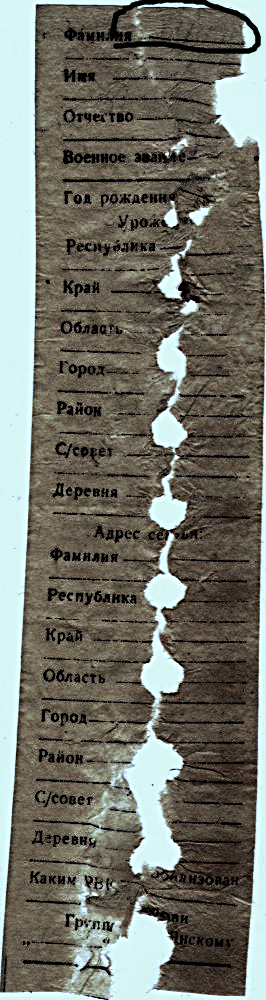 Фамилия
Имя
Отчество
Военное звание
Год рождения
Уроже
Республика
Край
Область
Город
Район
С/совет
Деревня
Адрес семьи:
Фамилия
Республика
Край
Область
Город
Район
С/совет
Деревня
Каким РВК
Групп